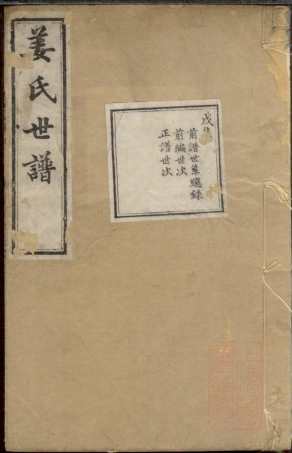 姜氏世譜
戌集
前譜世系總錄
前編世次
正譜世次